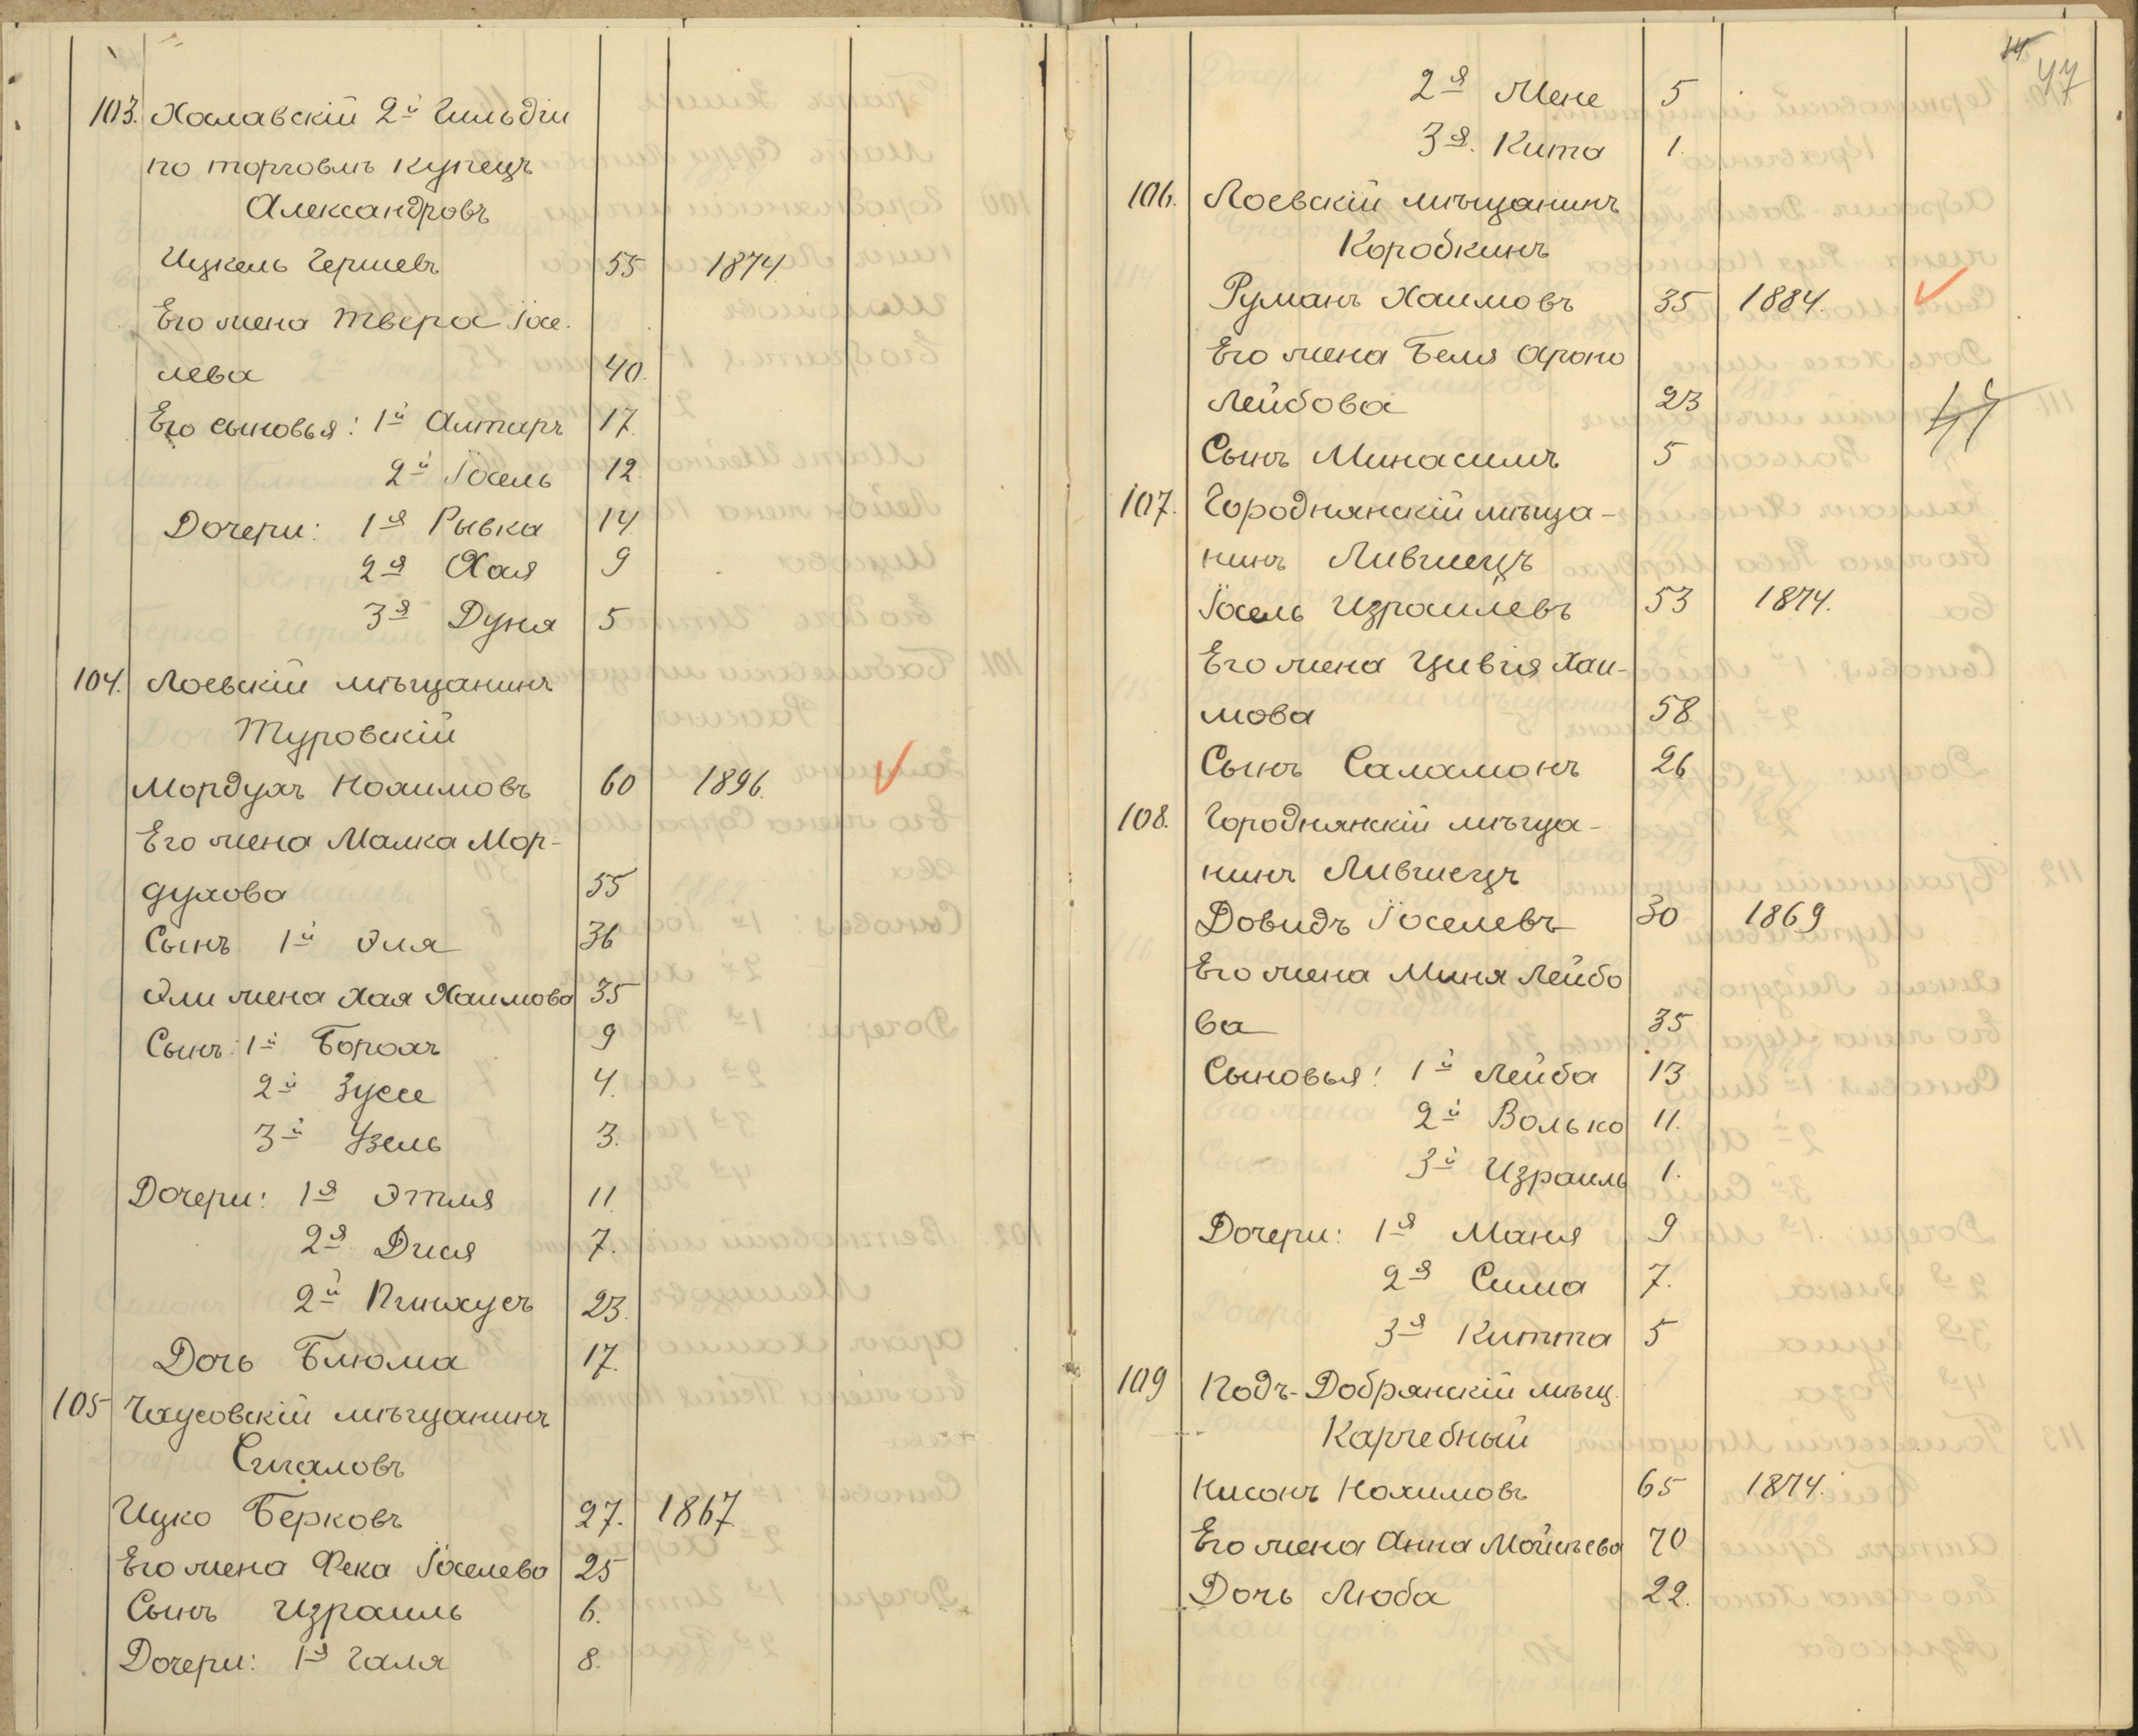 103. Халавскій 2й Гильдіи
по торговлѣ купецъ
Александровъ
Ицкель Гершевъ 55 1874.
Его жена Твера Іосе.
лева 40.
Его сыновья: 1й Алтаръ 17.
2й Іосель 12.
Дочери: 1я Рывка 14.
2я Хая 9
3я Дуня 5
104. Лоевскій мѣщанинъ
Туровскій
Мордухъ Нохимовъ 60 1896.
Его жена Малка Мор-
духова 55
Сынъ 1й Эля 36
Эли жена Хая Хаимова 35
Сынъ: 1й Борохъ 9
2й Зуссе 4.
3й Узель 3.
Дочери: 1я Этля 11.
2я Дися 7.
2й Пинхусъ 23.
Дочь Блюма 17.
105 Чаусовскій мѣщанинъ
Сигаловъ
Ицко Берковъ 27. 1867
Его жена Фека Іоселева 25
Сынъ Израиль 6.
Дочери: 1я Галя 8.
47
2я Мене 5
3я. Кита 1.
106. Лоевскій мѣщанинъ
Коробкинъ
Руманъ Хаимовъ 35 1884.
Его жена Беля Ароно
Лейбова 23
Сынъ Минасимъ 5
107. Городнянскій мѣща-
нинъ Лившецъ
Іосель Израилевъ 53 1874.
Его жена Цивія Хаи-
мова 58
Сынъ Саламонъ 26
108. Городнянскій мѣща-
нинъ Лившецъ
Довидъ Іоселевъ 30 1869
Его жена Миня Лейбо
ва 35
Сыновья: 1й Лейба 13
2й Волько 11.
3й Израиль 1.
Дочери: 1я Маня 9
2я Сима 7.
3я Китта 5
109 Подъ-Добрянскій мѣщ.
Карчебный
Нисонъ Нохимовъ 65 1874.
Его жена Анна Мойсѣева 70
Дочь Люба 22.